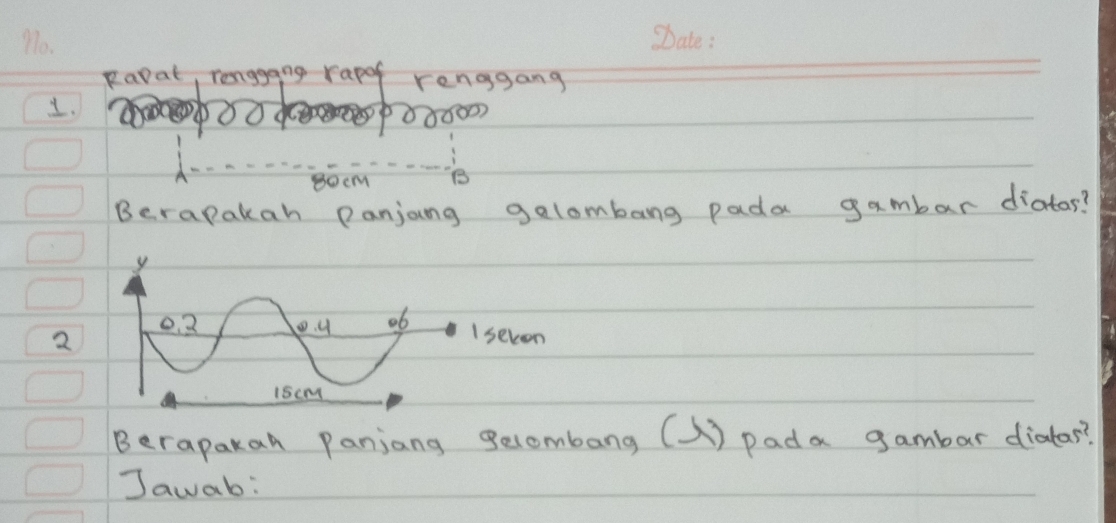 No.
Date:
Rapat renggang rapat renggang
1.
A
B
80cm
Berapakah panjang gelombang pada gambar diatas?
y
0.2
0.4
06
1 sekon
2
15cm
Berapakah panjang gelombang (λ) pada gambar diatas?
Jawab: